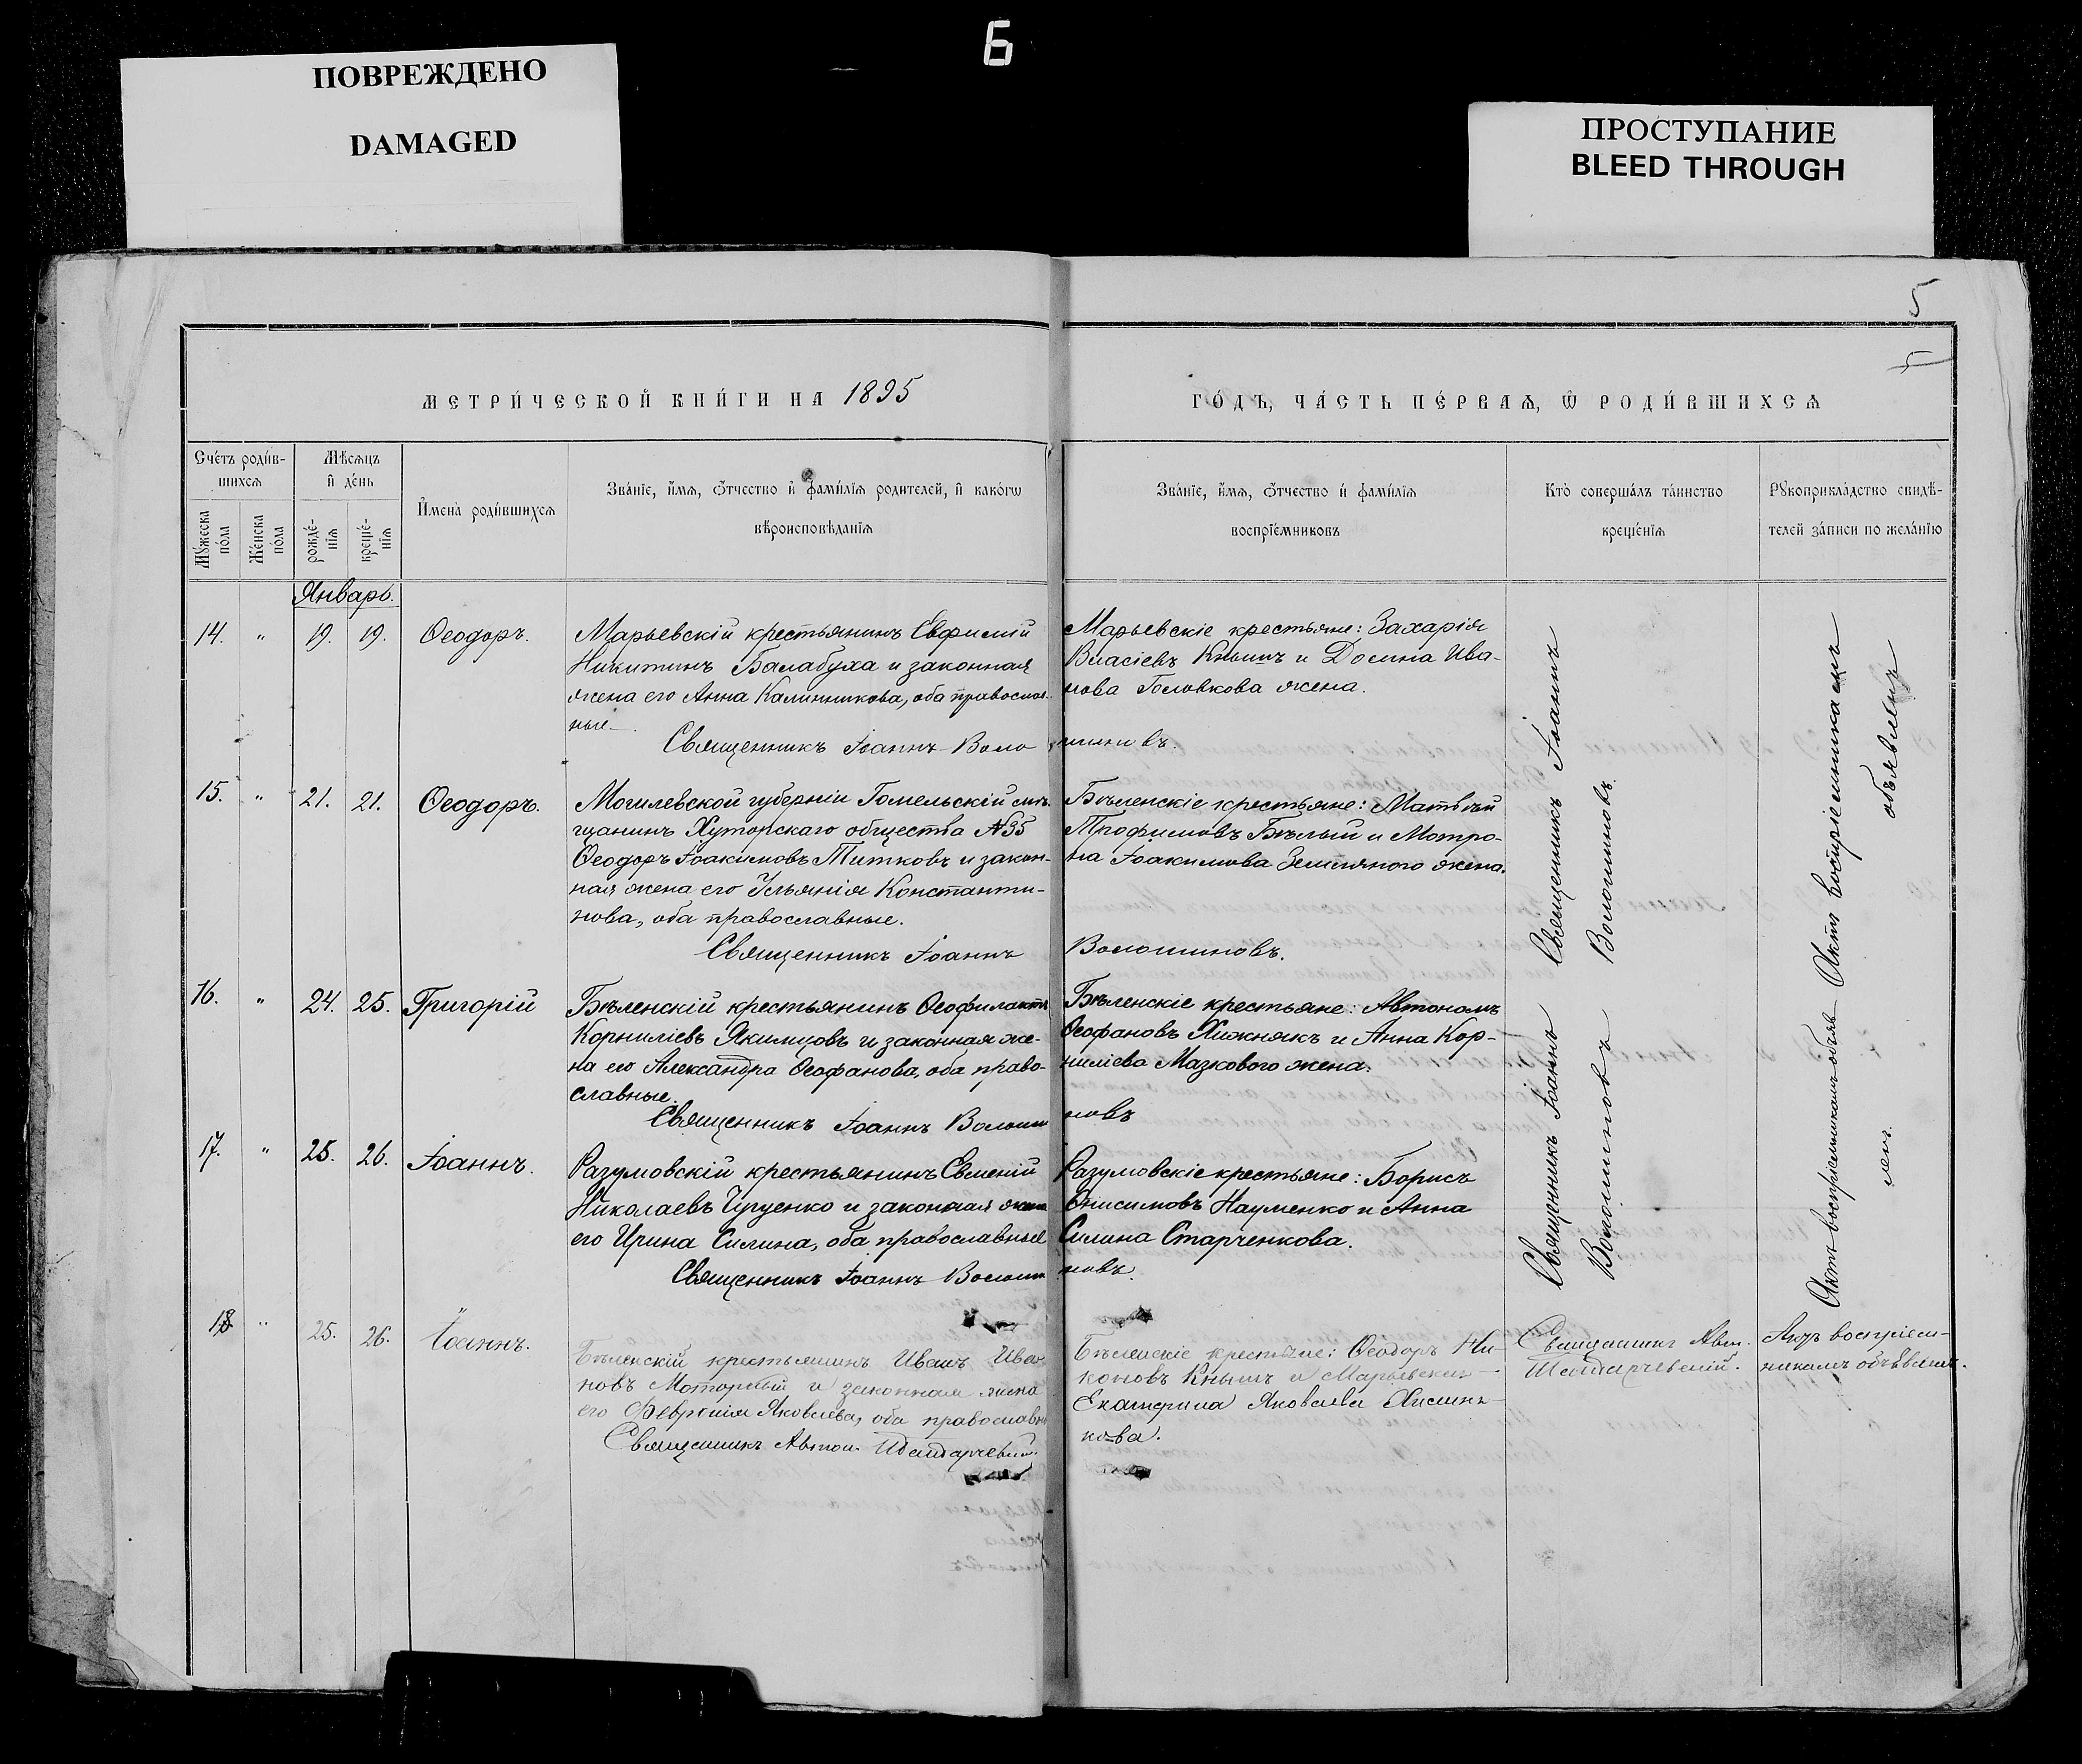 Б
ПОВРЕЖДЕНО
DAMAGED
ПРОСТУПАНИЕ
BLEED THROUGH
5
5
МЕТРИ́ЧЕСКОЙ КНИ́ГИ НА 1895
ГО́ДЪ, ЧА́СТЬ ПЕ́РВАѦ, Ѡ҆ РОДИ́ВШИХСѦ
Сче́тъ роди́в-
шихсѧ
Мꙋ́жеска по́ла
Же́нска по́ла
Мѣ́сѧцъ
и҆ де́нь
рожде́-
нїѧ
креще́-
нїѧ
И҆мена̀ роди́вшихсѧ
Зва́нїе, и҆́мѧ, ѻ҆́тчество и҆ фами́лїѧ родителей, и҆ како́гѡ
вѣроисповѣ́данїѧ
Зва́нїе, и҆́мѧ, ѻ҆́тчество и҆ фами́лїѧ
воспрїе́мниковъ
Кто̀ соверша́лъ та́инство
креще́нїѧ
Рꙋкоприкла́дство свидѣ́-
телей за́писи по жела́нїю
Январь.
14. " 19. 19. Ѳеодоръ.
Марьевскій крестьянинъ Евфимій
Никитинъ Балабуха и законная
жена его Анна Калинникова, оба православ-
ные.
Священникъ Іоаннъ Воло
шиновъ.
Марьевскіе крестьяне: Захарія
Власіевъ Кнышъ и Домна Ива-
нова Головкова жена.
15. " 21. 21. Ѳеодоръ.
Могилевской губерніи Гомельскій мѣ-
щанинъ Хуторскаго общества №35
Ѳеодоръ Іоакимовъ Титковъ и закон-
ная жена его Ульянія Константи-
нова, оба православные.
Священникъ Іоаннъ
Волошиновъ.
Бѣленскіе крестьяне: Матвѣй
Трофимовъ Бѣлый и Мотро-
на Іоакимова Земляного жена.
16. " 24. 25. Григорій
Бѣленскій крестьянинъ Ѳеофилактъ
Корниліевъ Якимцовъ и законная же-
на его Александра Ѳеофанова, оба право-
славные.
Священникъ Іоаннъ Волоши
новъ
Бѣленскіе крестьяне: Автономъ
Ѳеофановъ Хижнякъ и Анна Кор-
ниліева Мазкового жена.
17. " 25. 26. Іоаннъ.
Разумовскій крестьянинъ Евменій
Николаевъ и законная жена
его Ирина Силина, оба православные
Священникъ Іоаннъ Волоши
новъ.
Разумовскіе крестьяне: Борисъ
Онисимовъ Науменко и Анна
Силина Старченкова.
18. " 25. 26. Іоаннъ.
Бѣленскій крестьянинъ Иванъ Ива-
новъ Моторный и законная жена
его Февронія Яковлева, оба православн
Священникъ Антон.
Бѣленскіе крестьяне: Ѳеодоръ Ни-
коновъ Кнышъ и Марьевская
Екатерина Яковлева
кова.
Священникъ
Актъ воспріем-
никамъ объявленъ.
Священникъ Іоаннъ
Волошиновъ.
Священникъ Іоаннъ
Волошиновъ
Актъ воспріемникамъ
объявленъ
Актъ воспріемникамъ объяв-
ленъ.